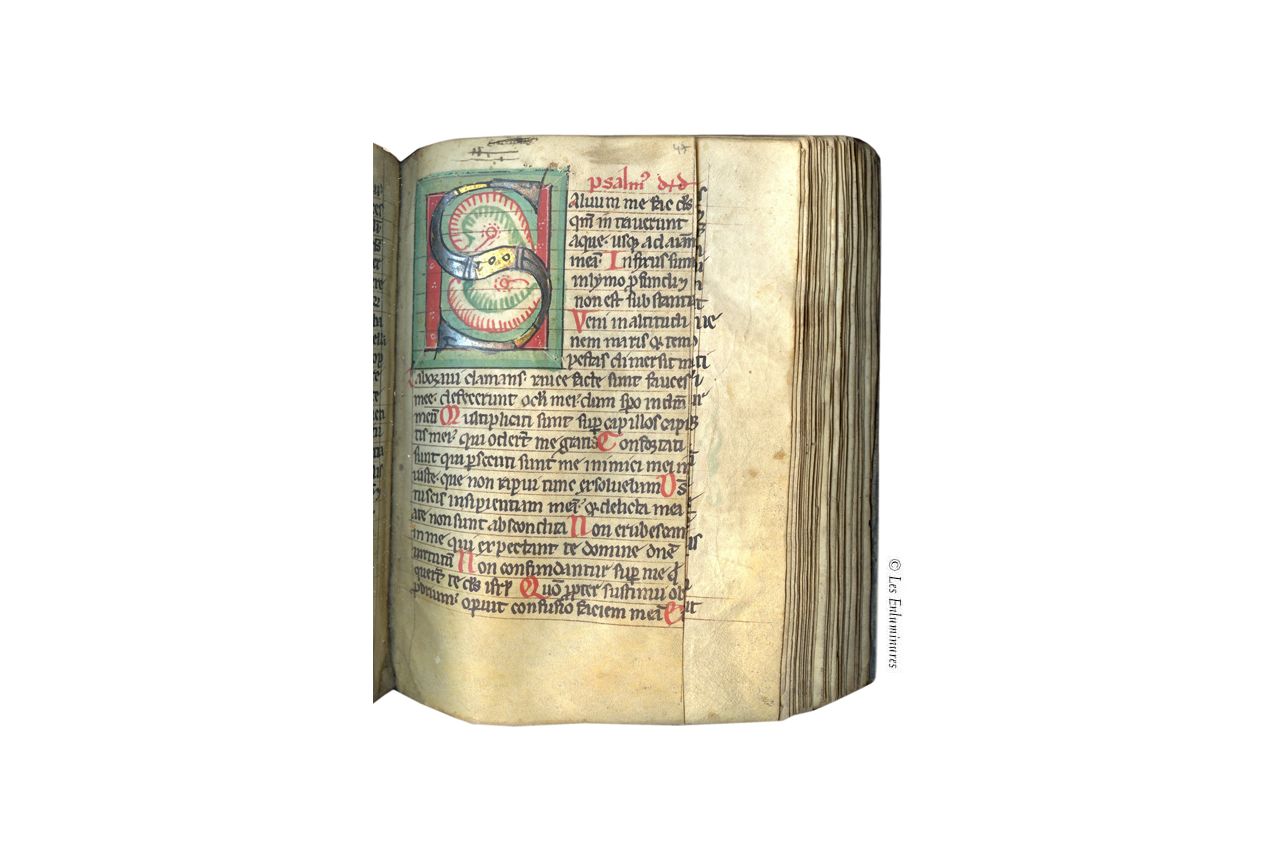 47
psalm᷒ dd
S Aluum me fac ds̄
qm̄ intrauerunt
aque· usq; ad aīam
meā· Infixus sum
in lymo p̱fundi ⁊
non est substantia
Veni in altitudi
nem maris ⁊ tem
pestas dimersit me
Laboraui clamans· rauce facte sunt fauces
mee· defecerunt ocl̄i mei· dum sp̱o in dm̄
meū Multiplicati sunt sup̱ capillos capi
tis mei· qui oder̄t me gratis Confortati
sunt qui p̱secuti sunt me inimici mei in
iuste· que non rapui tunc exsoluebam Ds̄
tu scis insipientiam meā· ⁊ delicta mea
a te non sunt abscondita Non erubescant
in me qui expectant te domine dn̄e
uirtutū Non confundantur sup̱ me q̄
quer̄t te ds̄ isrl̄ Quō ꝓpter sustinui op
ꝓbrium· opuit confusio faciem meā
© Les Enluminures